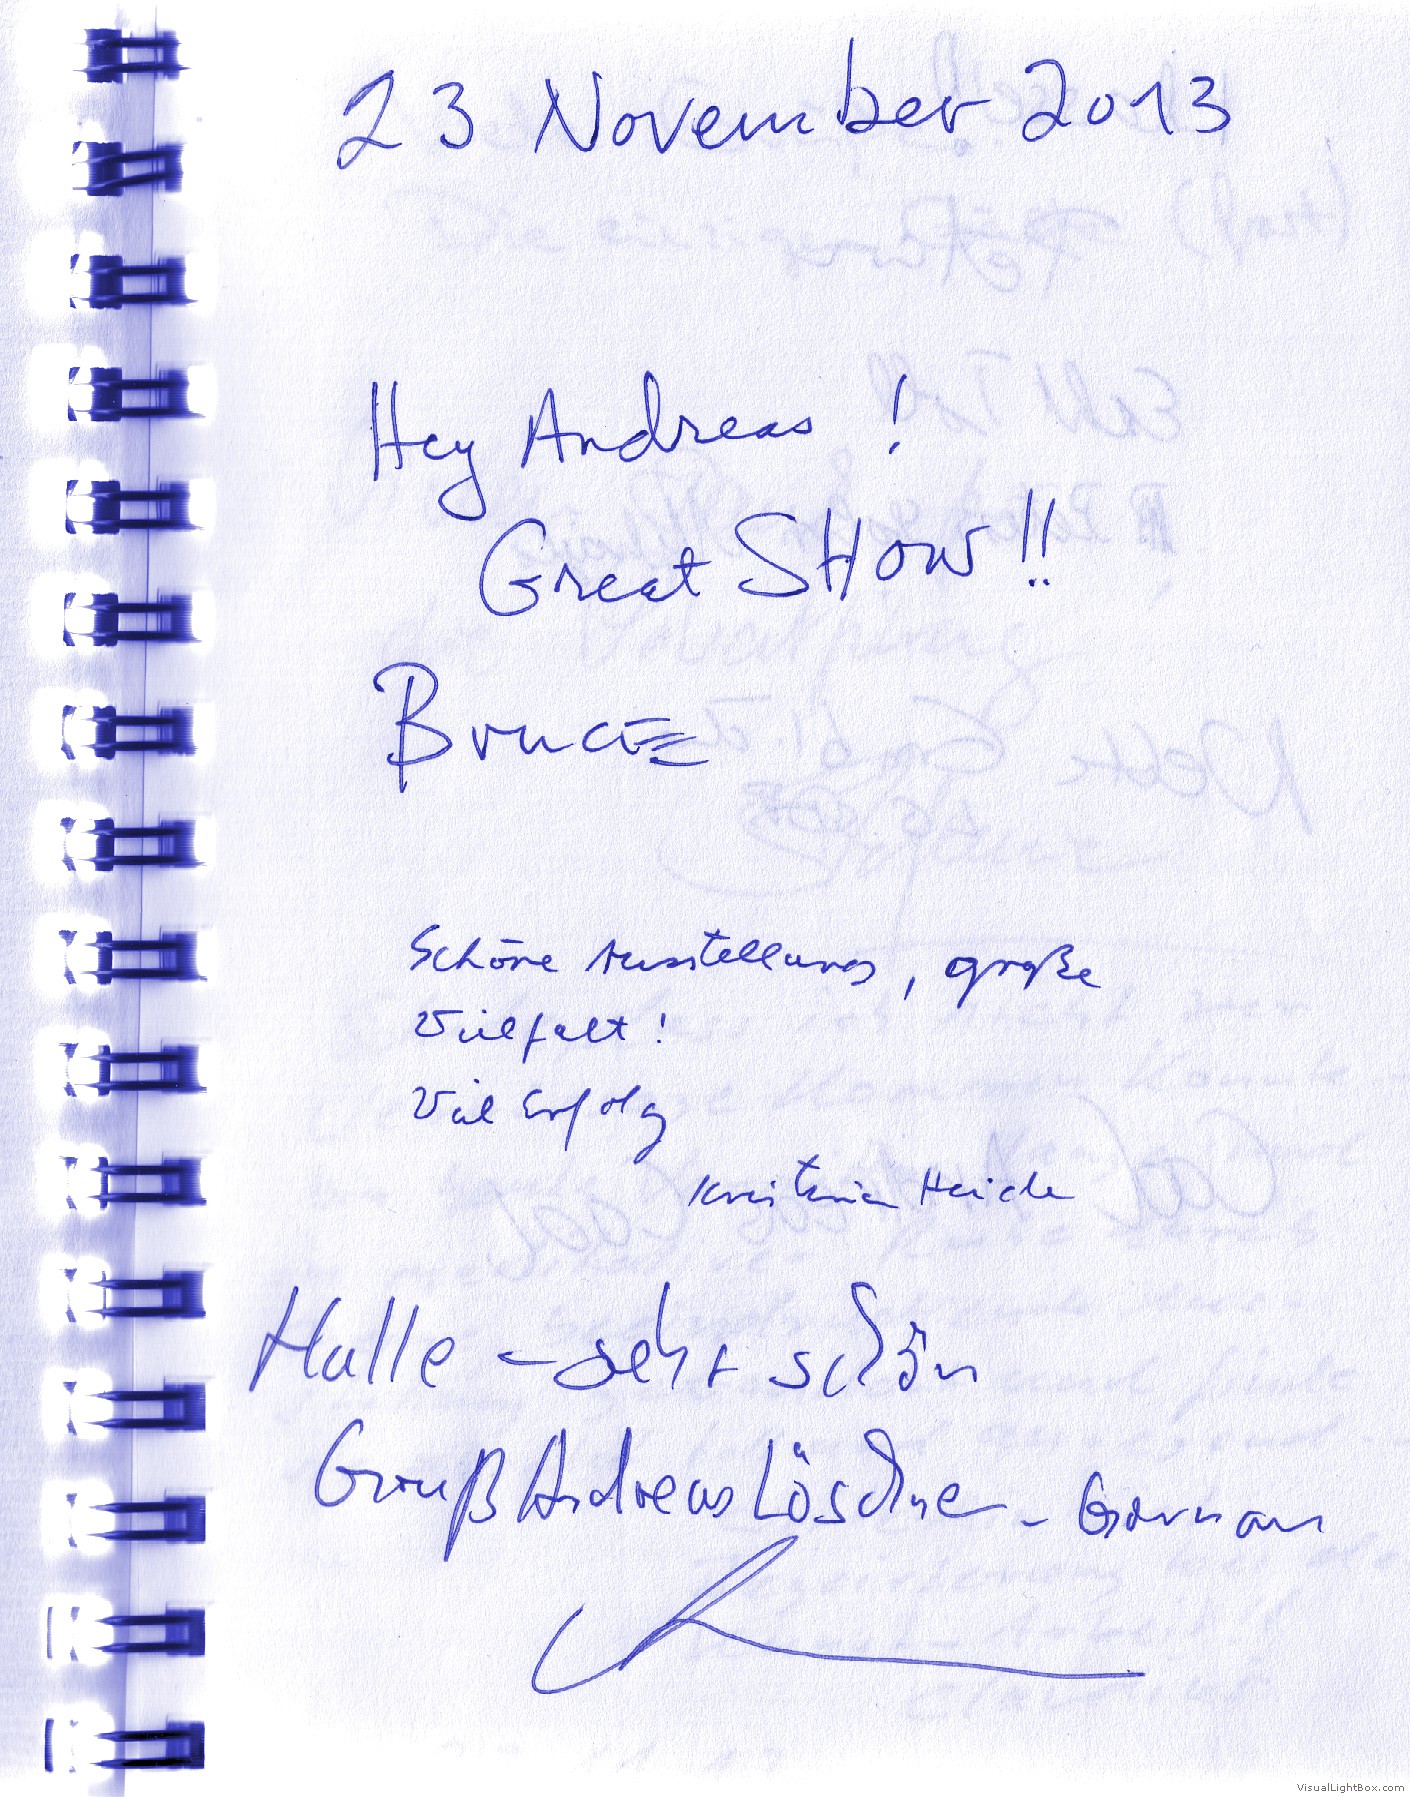 23 November 2013
Hey Andreas !
Great SHOW !!
Bruce
Schöne Ausstellung, große
Vielfalt !
Viel Erfolg
Heide
Halle - sehr schön
Gruß Andreas Löschner - Gornau
VisualLightBox.com